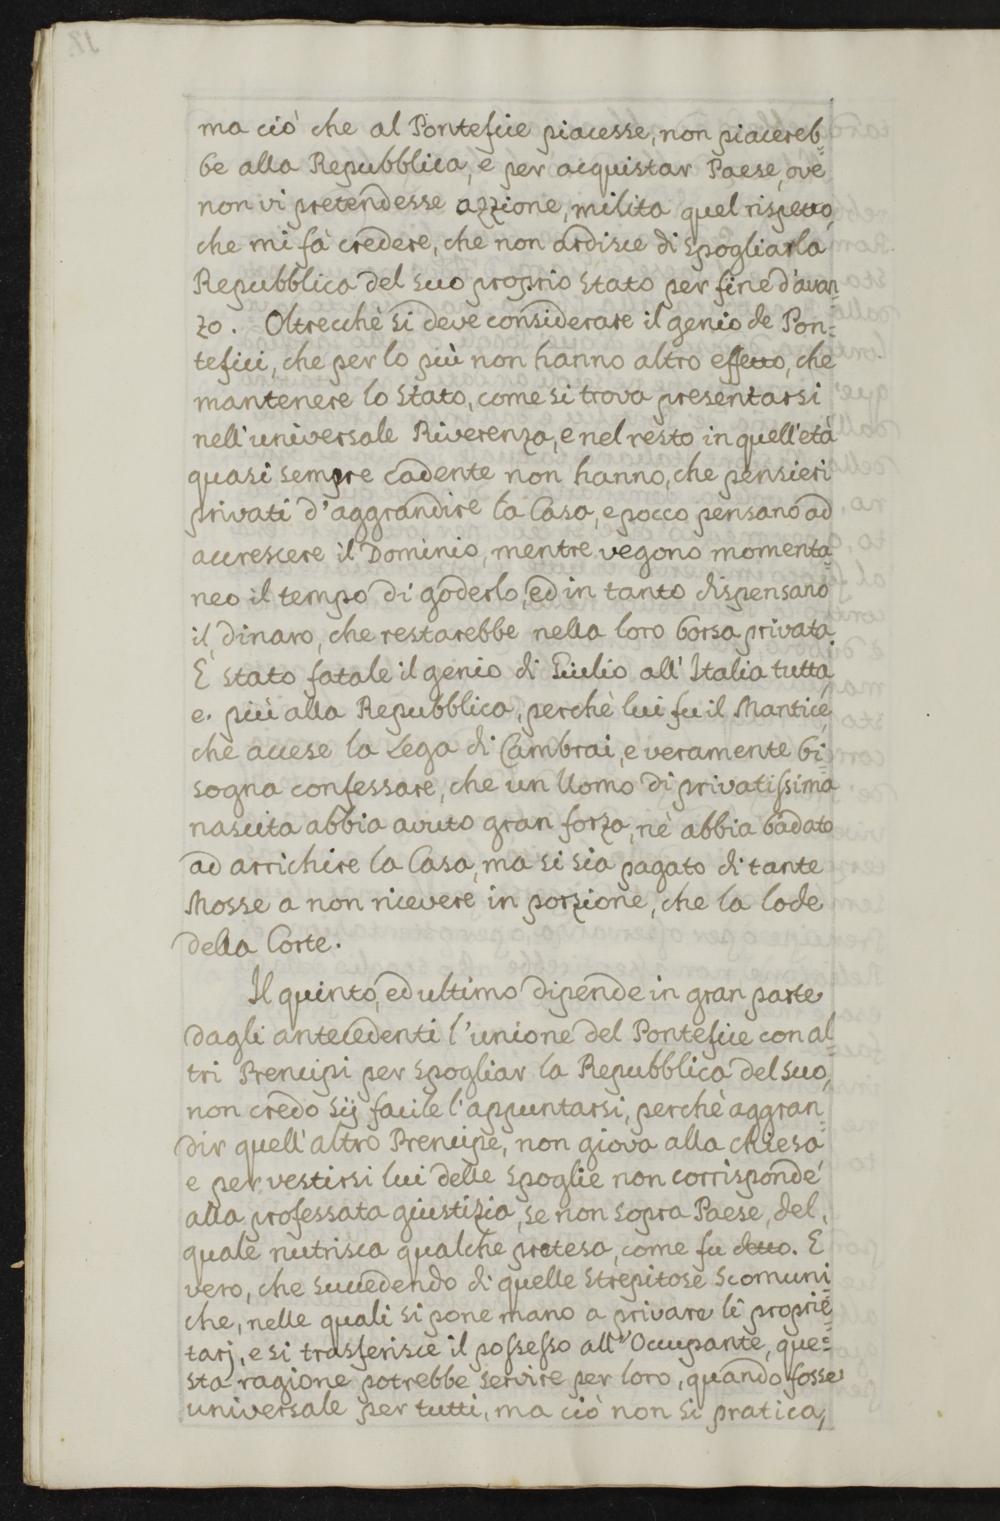 ma ciò che al Pontefice piacesse, non piacereb=
be alla Repubblica, e per acquistar Paese, ove
non vi pretendesse azzione, milita quel rispetto,
che mi fà credere, che non ardisce di spogliar la
Repubblica del suo proprio stato per fine d'avan=
zo. Oltrecchè si deve considerare il genio de Pon=
tefici, che per lo più non hanno altro effetto, che
mantenere lo stato, come si trova presentarsi
nell'universale Riverenza, e nel resto in quell'età
quasi sempre cadente non hanno, che pensieri
privati d'aggrandire la Casa, e pocco pensano ad
accrescere il Dominio, mentre vegono momenta=
neo il tempo di goderlo, ed in tanto dispensano
il dinaro, che restarebbe nella loro borsa privata.
E' stato fatale il genio di Giulio all'Italia tutta,
e più alla Repubblica, perchè lui fu il Mantice,
che accese la Lega di Cambrai, e veramente bi=
sogna confessare, che un Uomo di privatissima
nascita abbia avuto gran forza, nè abbia badato
ad arrichire la Casa, ma si sia pagato di tante
Mosse a non ricevere in porzione, che la lode
della Corte.
Il quinto, ed ultimo dipende in gran parte
dagli antecedenti l'unione del Pontefice con al=
tri Prencipi per spogliar la Repubblica del suo,
non credo sij facile l'appuntarsi, perchè aggran=
dir quell'altro Prencipe, non giova alla chiesa
e per vestirsi lui delle spoglie non corrisponde
alla professata giustizia, se non sopra Paese, del
quale nutrisca qualche pretesa, come fu dtto. E
vero, che succedendo di quelle strepitose scomuni=
che, nelle quali si pone mano a privare li proprie=
tarj, e si trasferisce il possesso all'Occupante, que=
sta ragione potrebbe servire per loro, quando fosse
universale per tutti, ma ciò non si pratica,